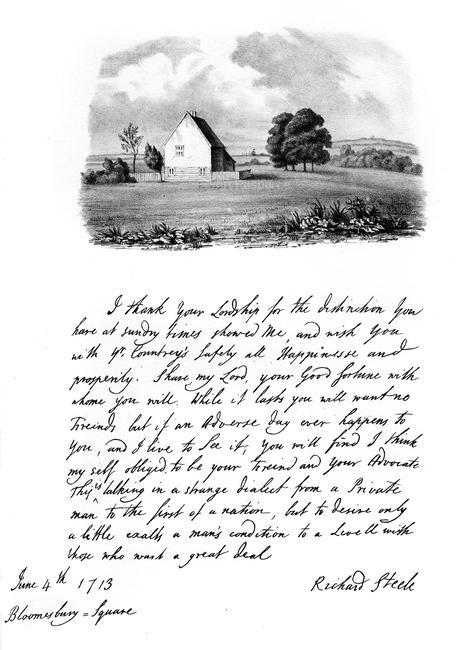 I thank Your Lordship for the distinction You
have at sundry times showed Me, and wish You
with yr. Countrey's Safety all Happinesse and
prosperity. Share my Lord, your Good fortune with
whome you will. While it lasts you will want no
Freinds but if an Adverse day ever happens to
You, and I live to See it, you will find I think
my self obliged to be your Freind and Your Advocate
This is talking in a strange dialect from a Private
man to the first of a nation, but to desire only
a little exalts a man's condition to a Levell with
those who want a great deal
June 4th 1713 Richard Steele
Bloomesbury = Square